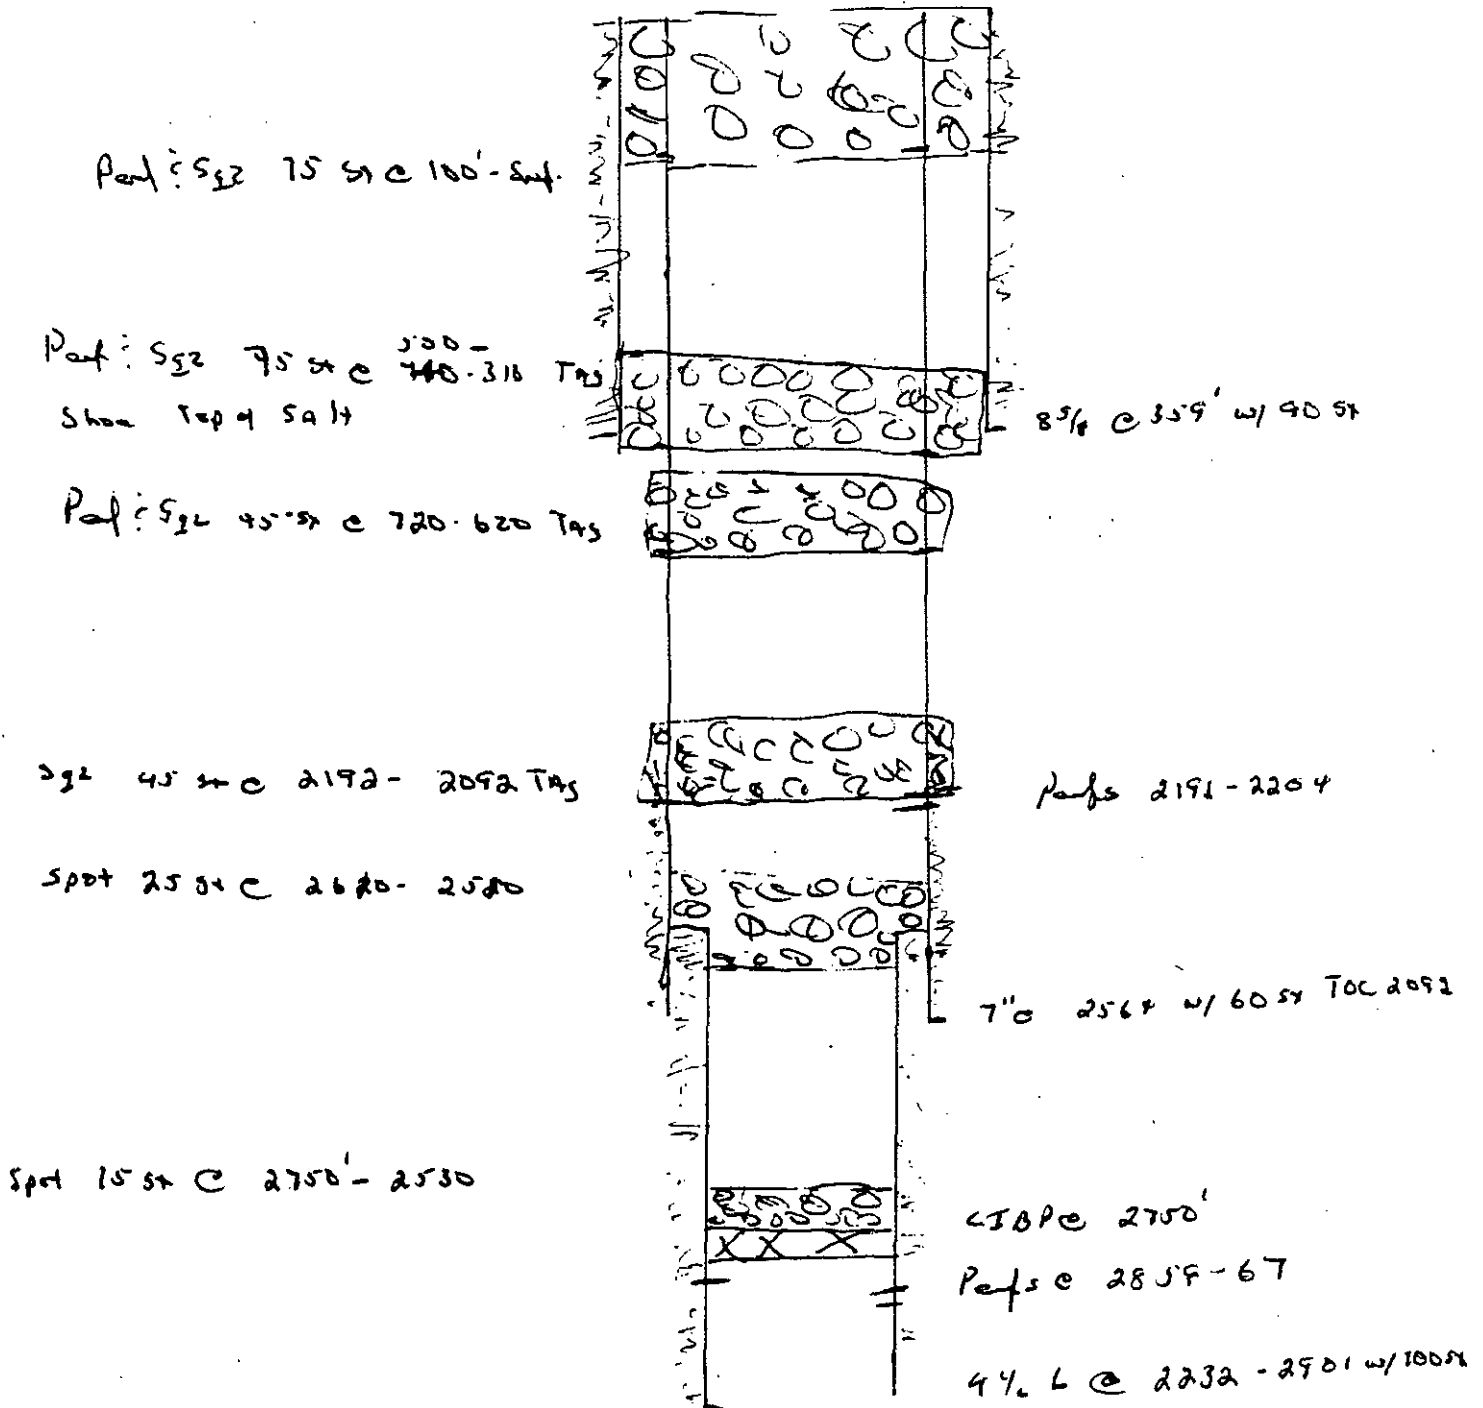 Perf : Sqz 75 sx @ 100'- Surf.
Perf : Sqz 75 sx @ 500- 310 TAG
Shoe Top of Salt
8 5/8 @ 359' w/ 90 sx
Perf : Sqz 45 sx @ 720-620 TAG
Sqz 45 sx @ 2192- 2092 TAG
Perfs 2191-2204
Spot 25 sx @ 2620- 2520
7" @ 2564 w/ 60 sx TOC 2092
Spot 15 sx @ 2750'- 2530
CIBP @ 2750'
Perfs @ 2859-67
4 1/2 L @ 2232 - 2901 w/ 100sx